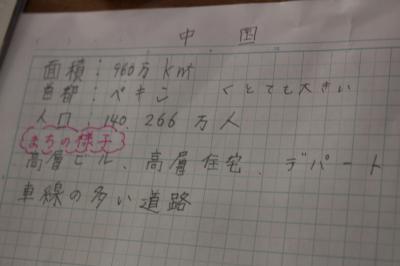 中国
面積：960万km²
首都：ペキン くとても大きい
人口：140,266万人
まちの様子
高層ビル、高層住宅、デパート
車線の多い道路